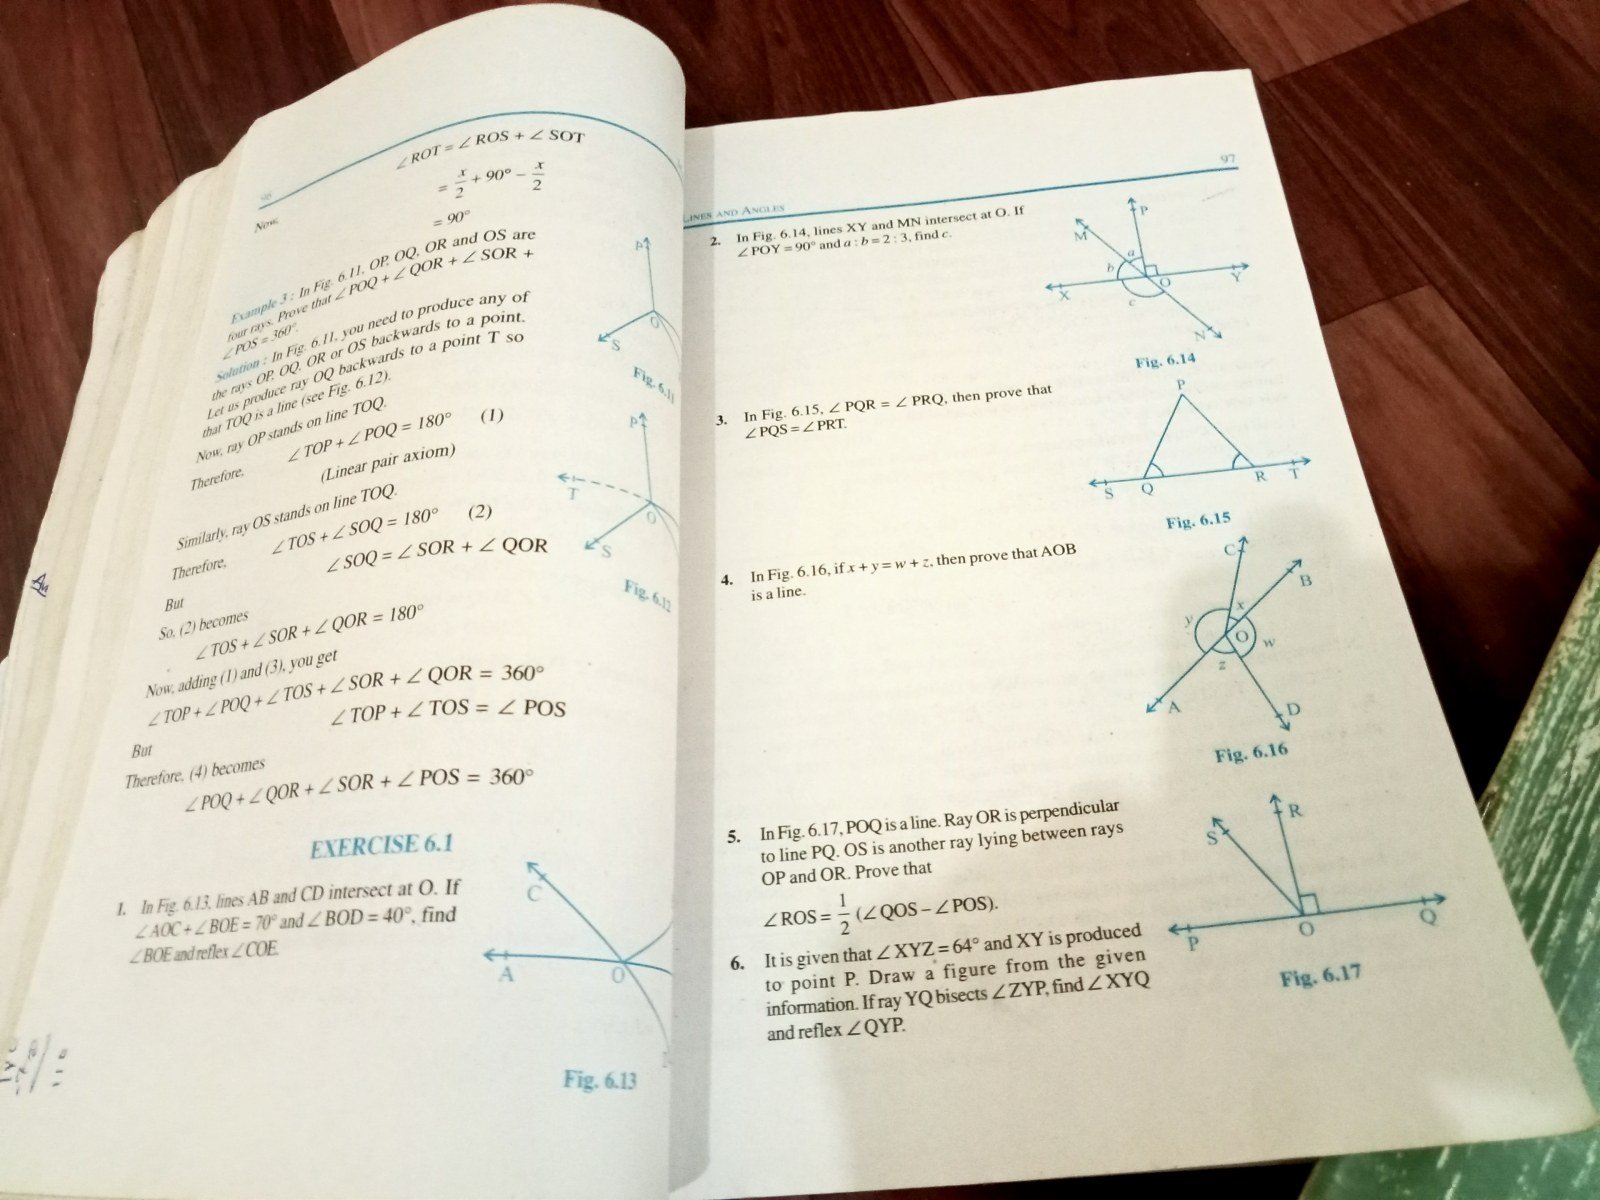 96
∠ ROT = ∠ ROS + ∠ SOT
= x/2 + 90° – x/2
Now,
= 90°
Example 3 : In Fig. 6.11, OP, OQ, OR and OS are
four rays. Prove that ∠ POQ + ∠ QOR + ∠ SOR +
∠ POS = 360°.
Solution : In Fig. 6.11, you need to produce any of
the rays OP, OQ, OR or OS backwards to a point.
Let us produce ray OQ backwards to a point T so
that TOQ is a line (see Fig. 6.12).
Now, ray OP stands on line TOQ.
Therefore, ∠ TOP + ∠ POQ = 180° (1)
(Linear pair axiom)
Similarly, ray OS stands on line TOQ.
Therefore, ∠ TOS + ∠ SOQ = 180° (2)
But ∠ SOQ = ∠ SOR + ∠ QOR
So, (2) becomes
∠ TOS + ∠ SOR + ∠ QOR = 180°
Now, adding (1) and (3), you get
∠ TOP + ∠ POQ + ∠ TOS + ∠ SOR + ∠ QOR = 360°
But ∠ TOP + ∠ TOS = ∠ POS
Therefore, (4) becomes
∠ POQ + ∠ QOR + ∠ SOR + ∠ POS = 360°
P
O
S
Fig. 6.11
P
T
O
S
Fig. 6.12
EXERCISE 6.1
1. In Fig. 6.13, lines AB and CD intersect at O. If
∠ AOC + ∠ BOE = 70° and ∠ BOD = 40°, find
∠ BOE and reflex ∠ COE.
C
A
O
Fig. 6.13
LINES AND ANGLES
97
2. In Fig. 6.14, lines XY and MN intersect at O. If
∠ POY = 90° and a : b = 2 : 3, find c.
P
M
a
b
X
O
Y
c
N
Fig. 6.14
3. In Fig. 6.15, ∠ PQR = ∠ PRQ, then prove that
∠ PQS = ∠ PRT.
P
S
Q
R
T
Fig. 6.15
4. In Fig. 6.16, if x + y = w + z, then prove that AOB
is a line.
C
B
x
y
O
w
z
A
D
Fig. 6.16
5. In Fig. 6.17, POQ is a line. Ray OR is perpendicular
to line PQ. OS is another ray lying between rays
OP and OR. Prove that
∠ ROS = 1/2 (∠ QOS – ∠ POS).
R
S
P
O
Q
Fig. 6.17
6. It is given that ∠ XYZ = 64° and XY is produced
to point P. Draw a figure from the given
information. If ray YQ bisects ∠ ZYP, find ∠ XYQ
and reflex ∠ QYP.